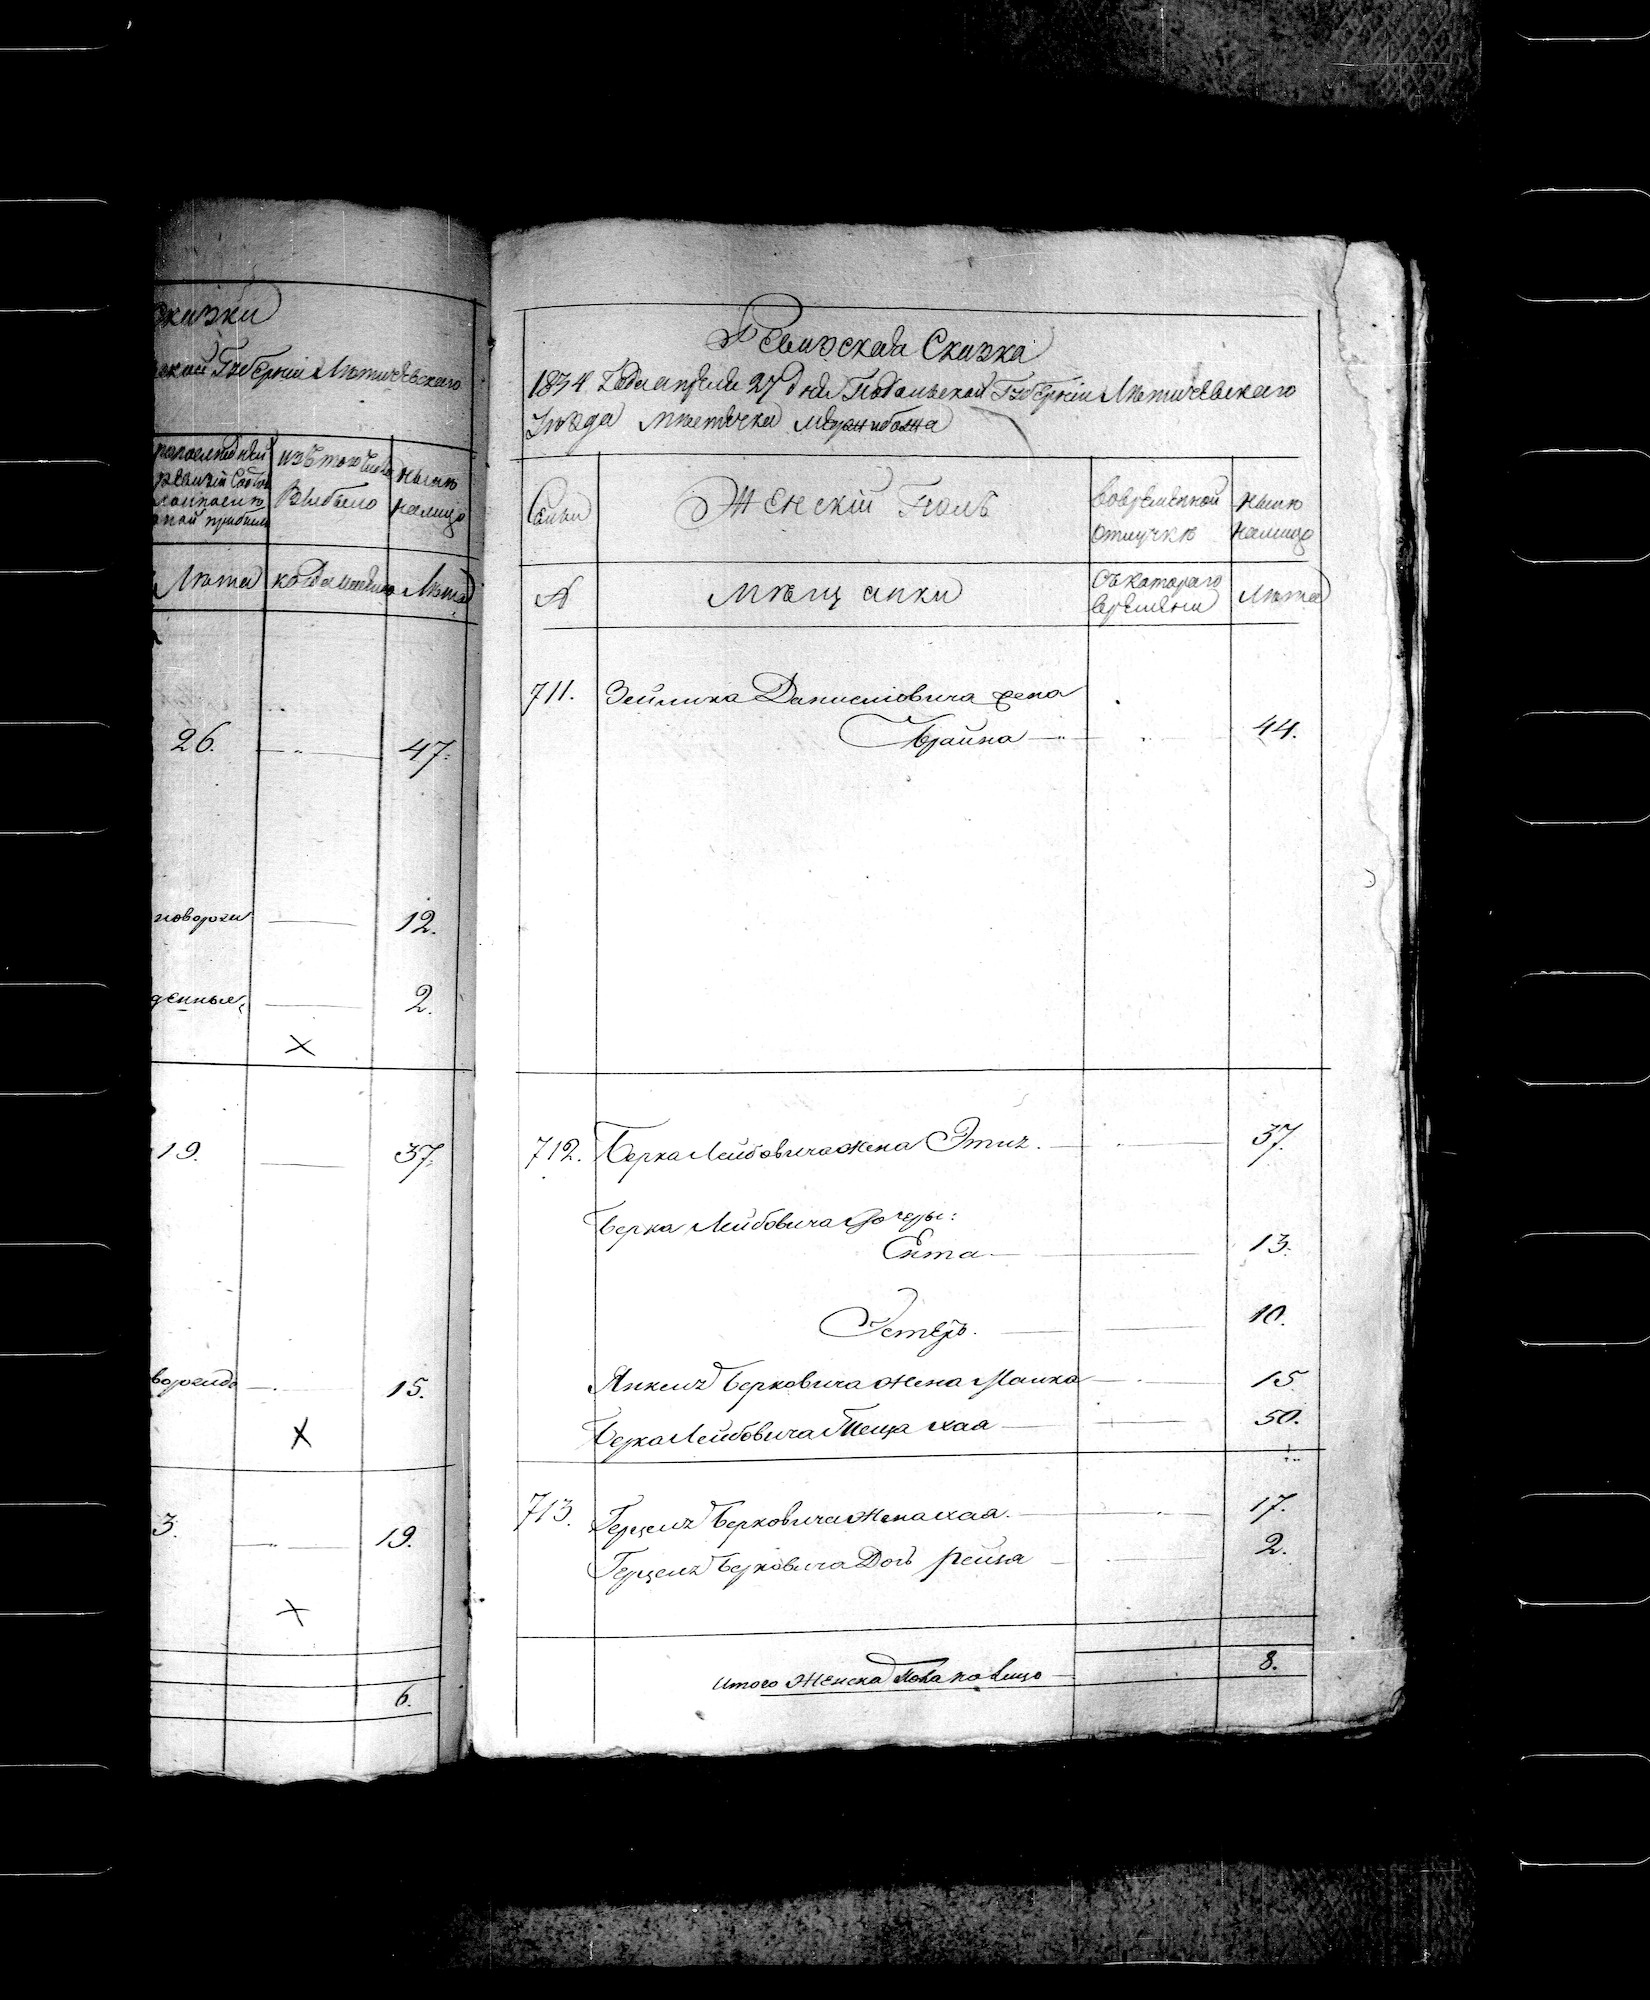 сказки
ской Губерніи Летичевскаго
изъ того числа
Выбыло
ныне
налицо
Лета
когда именно
Лета
26.
47.
новорож
12.
денные
2.
19.
37.
15.
3.
19.
6.
Ревизская Сказка
1834 Года апреля 27 дня Подольской Губерніи Летичевскаго
Уезда местечка Меджибожа
Семьи
Женскій Полъ
Вовременной
отлучке
ныне
налицо
№
мещанки
Съ катораго
времени
Лета
711. Зейлика Даниелювича жена
Брайна 44.
712. Берка Лейбовича жена Этиъ. 37.
Берка Лейбовича дочеры:
Ента 13.
Эстеръ. 10.
Янкелъ Берковича жена Малка 15
Берка Лейбовича Теща хая 50.
713. Герцелъ Берковича жена хая. 17.
Герцелъ Берковича Дочь Рейза 2.
итого Женска Пола налицо 8.